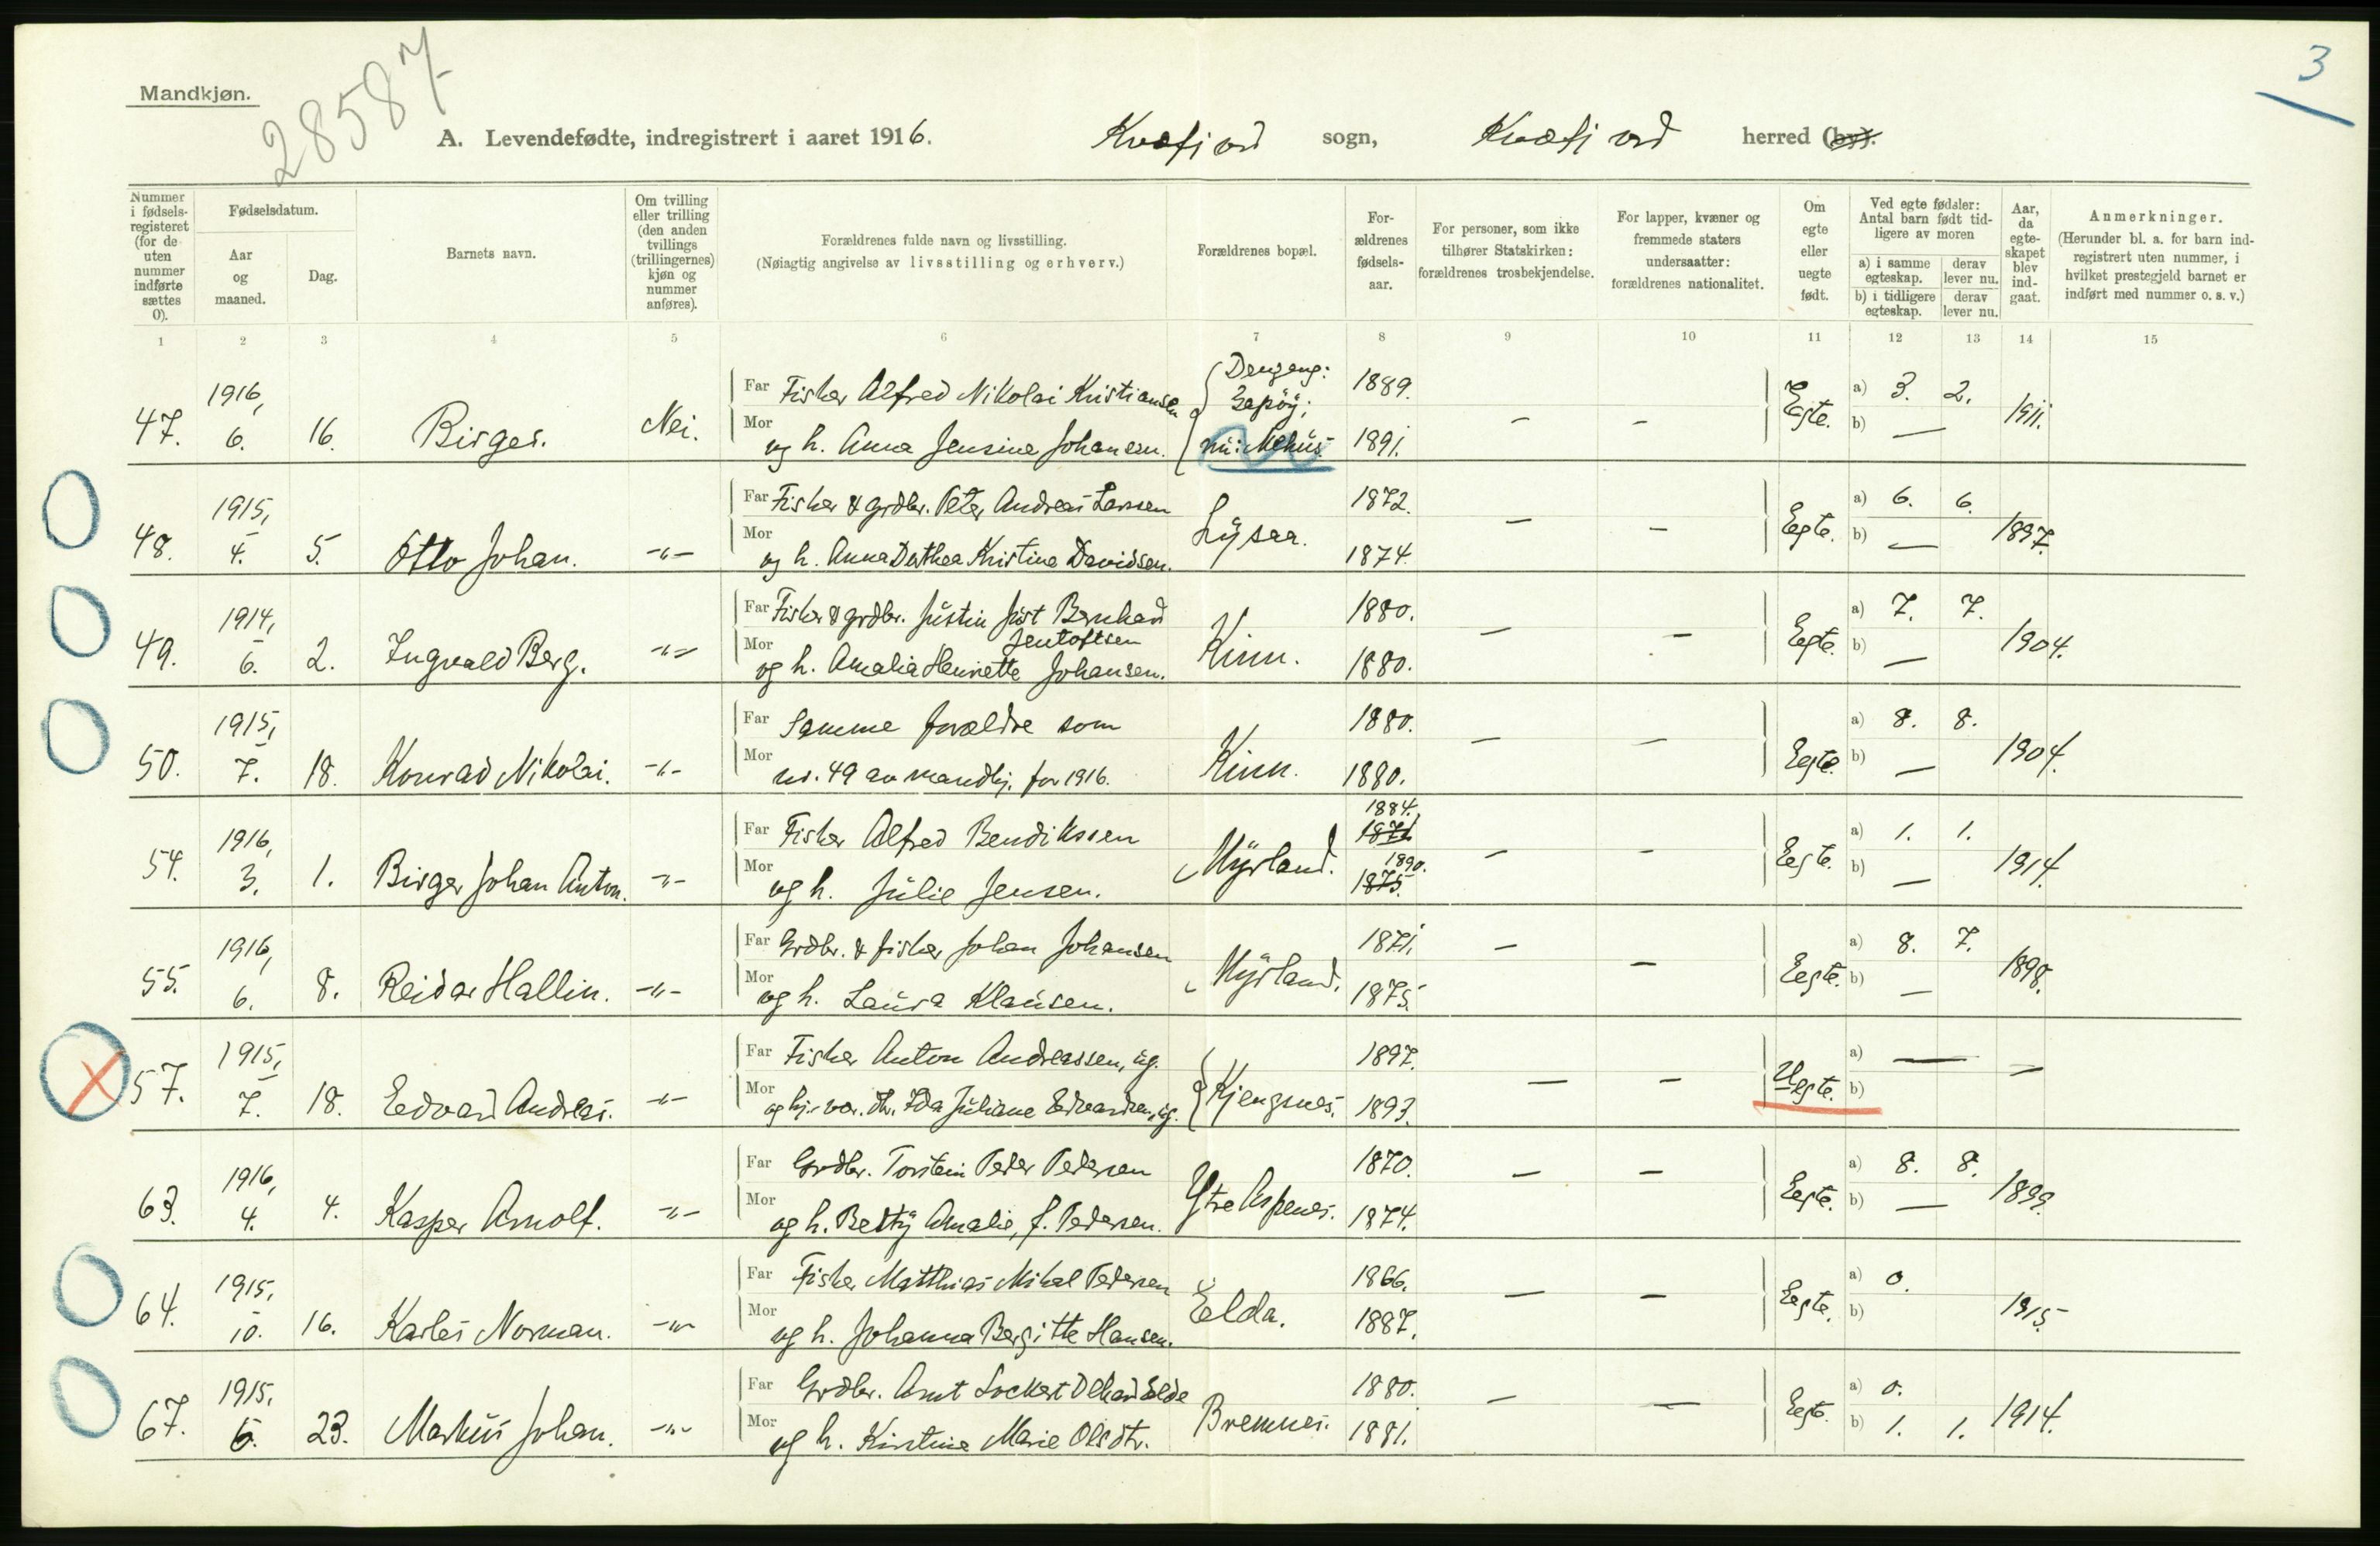 3
Mandkjøn.
28587
A. Levendefødte, indregistrert i aaret 1916. Kvæfjord sogn, Kvæfjord herred (by).
Nummer i fødselsregisteret (for de uten nummer indførte sættes 0).
Fødselsdatum.
Aar og maaned.
Dag.
Barnets navn.
Om tvilling eller trilling (den anden tvillings (trillingernes) kjøn og nummer anføres).
Forældrenes fulde navn og livsstilling.
(Nøiagtig angivelse av livsstilling og erhverv.)
Forældrenes bopæl.
For-ældrenes fødsels-aar.
For personer, som ikke tilhører Statskirken: forældrenes trosbekjendelse.
For lapper, kvæner og fremmede staters undersaatter: forældrenes nationalitet.
Om egte eller uegte født.
Ved egte fødsler: Antal barn født tid-ligere av moren
a) i samme egteskap. derav lever nu.
b) i tidligere egteskap. derav lever nu.
Aar, da egte-skapet blev ind-gaat.
Anmerkninger.
(Herunder bl. a. for barn ind-registrert uten nummer, i hvilket prestegjeld barnet er indført med nummer o. s. v.)
1 2 3 4 5 6 7 8 9 10 11 12 13 14 15
47. 1916, 6. 16. Birger. Nei.
Far Fisker Alfred Nikolai Kristiansen
Mor og h. Anna Jensine Johansen.
Dengang:
nu: Mehus.
1889. 1891. – – Egte. a) 3. 2. b) — 1911.
48. 1915, 4. 5. Otto Johan. -"-
Far Fisker & grdbr. Peter Andreas Larssen
Mor og h. Anna Dorthea Kristine Davidsen.
Lysaa. 1872. 1874. – – Egte. a) 6. 6. b) — 1897.
49. 1914, 6. 2. Ingvald Berg. -"-
Far Fisker & grdbr. Justin Just Bernhard
Jentoftsen
Mor og h. Amalia Henriette Johansen.
Kinn. 1880. 1880. – – Egte. a) 7. 7. b) — 1904.
50. 1915, 7. 18. Konrad Nikolai. -"-
Far Samme forældre som
Mor nr. 49 av mandkj. for 1916.
Kinn. 1880. 1880. – – Egte. a) 8. 8. b) — 1904.
54. 1916, 3. 1. Birger Johan Anton. -"-
Far Fisker Alfred Bendikssen
Mor og h. Julie Jensen.
Myrland. 1884. 1871 1890. 1875. – – Egte. a) 1. 1. b) — 1914.
55. 1916, 6. 8. Reidar Hallin. -"-
Far Grdbr. & fisker Johan Johansen
Mor og h. Laura Klausen.
Myrland. 1871. 1875. – – Egte. a) 8. 7. b) — 1898.
57. 1915, 7. 18. Edvard Andreas. -"-
Far Fisker Anton Andreassen, ug.
Mor og hj. vær. dtr. Ida Juliane Edvardsen, ug.
Kjengsnes. 1897. 1893. – – Uegte. a) b) — –
63. 1916, 4. 4. Kasper Arnolf. -"-
Far Grdbr. Torstein Peder Pedersen
Mor og h. Betty Amalie, f. Pedersen.
Ytre Aspenes. 1870. 1874. – – Egte. a) 8. 8. b) — 1899.
64. 1915, 10. 16. Karles Norman. -"-
Far Fisker Matthias Mikal Pedersen
Mor og h. Johanna Bergitte Hansen.
Elda. 1866. 1887. – – Egte. a) 0. b) 1915.
67. 1915, 6. 23. Markus Johan. -"-
Far Grdbr. Arnt Lockert
Mor og h. Kirstine Marie Olsdtr.
Bremnes. 1880. 1881. – – Egte. a) 0. b) 1. 1. 1914.